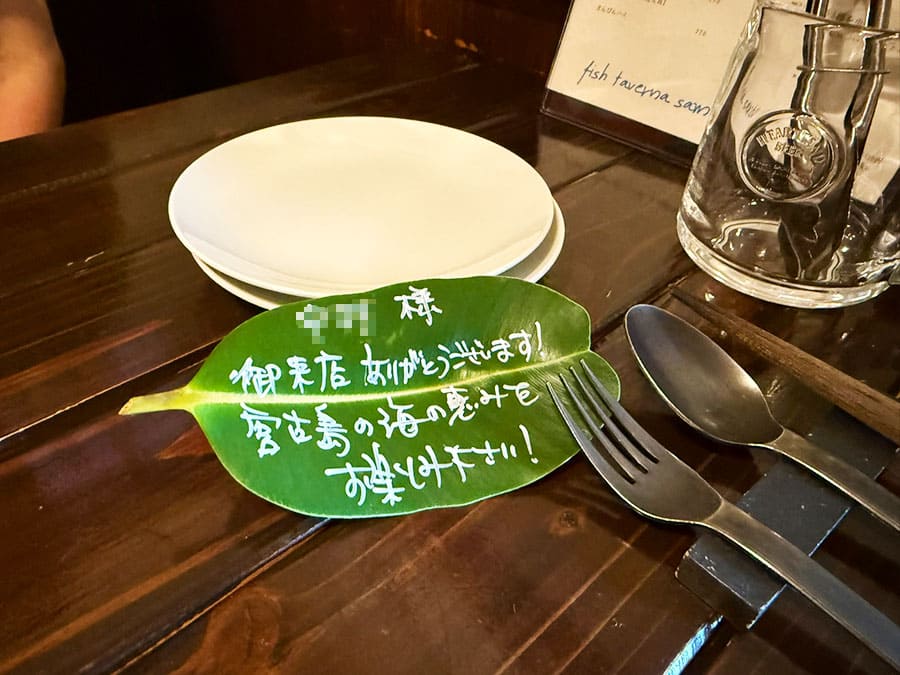 fish taverna sam
様
御来店 ありがとうございます!
宮古島の海の恵みを
お楽しみ下さい!